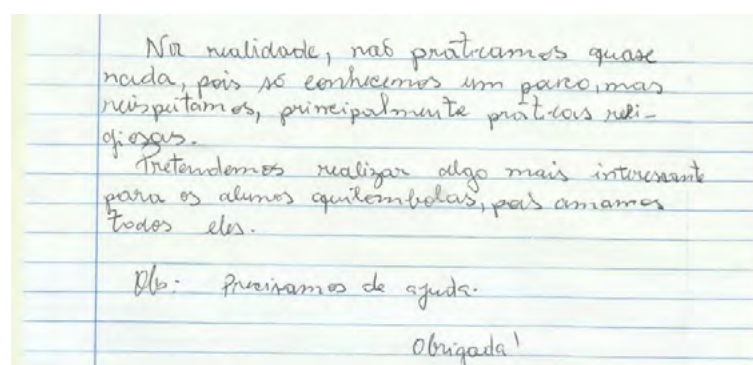 Na realidade, não praticamos quase
nada, pois só conhecemos um pouco, mas
respeitamos, principalmente práticas reli-
giosas.
Pretendemos realizar algo mais interessante
para os alunos quilombolas, pois amamos
todos eles.
Obs: Precisamos de ajuda.
Obrigada!